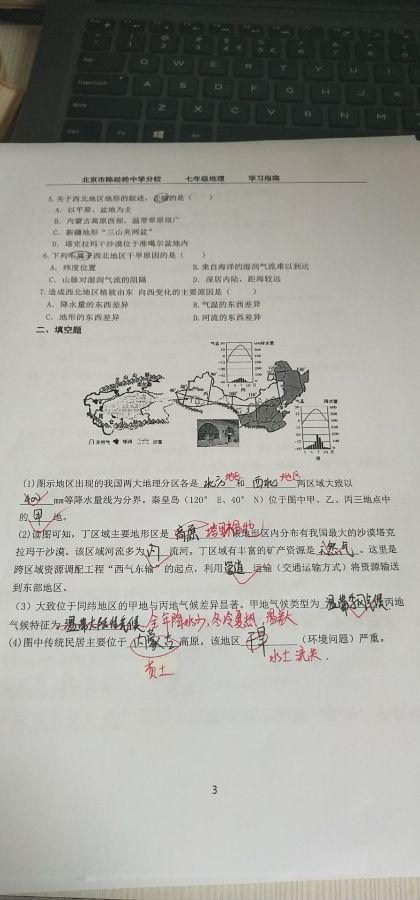 北京市陈经纶中学分校 七年级地理 学习指南
5.关于西北地区地形的叙述，正确的是（ ）
A．以平原、盆地为主
B．内蒙古高原西部，温带草原很广
C．新疆地形“三山夹两盆”
D．塔克拉玛干沙漠位于准噶尔盆地内
6.下列不属于西北地区干旱原因的是（ ）
A．纬度位置 B.来自海洋的湿润气流难以到达
C．山脉对湿润气流的阻隔 D．深居内陆，距海较远
7．造成西北地区植被由东 向西变化的主要原因是（ ）
A．降水量的东西差异 B.气温的东西差异
C．地形的东西差异 D.河流的东西差异
二、填空题
气温 降水量
丙
气温 降水量
天然气 绿洲 沙漠
甲
(1)图示地区出现的我国两大地理分区各是 北方地区 和 西北地区 两区域大致以
400 mm等降水量线为分界。秦皇岛（120° E、40° N）位于图中甲、乙、丙三地点中
的 甲 地。
(2)读图可知，丁区域主要地形区是 高原 塔里木盆地 该地形区内分布有我国最大的沙漠塔克
拉玛干沙漠。该区域河流多为 内 流河。丁区域有丰富的矿产资源是 天然气 。这里是
跨区域资源调配工程“西气东输”的起点，利用 管道 运输（交通运输方式）将资源输送
到东部地区。
（3）大致位于同纬地区的甲地与丙地气候差异显著。甲地气候类型为 温带季风气候 丙地
气候特征为 温带大陆性气候 全年降水少，冬冷夏热 温差大
(4)图中传统民居主要位于 内蒙古 高原。该地区 旱 （环境问题）严重。
黄土 水土流失
3